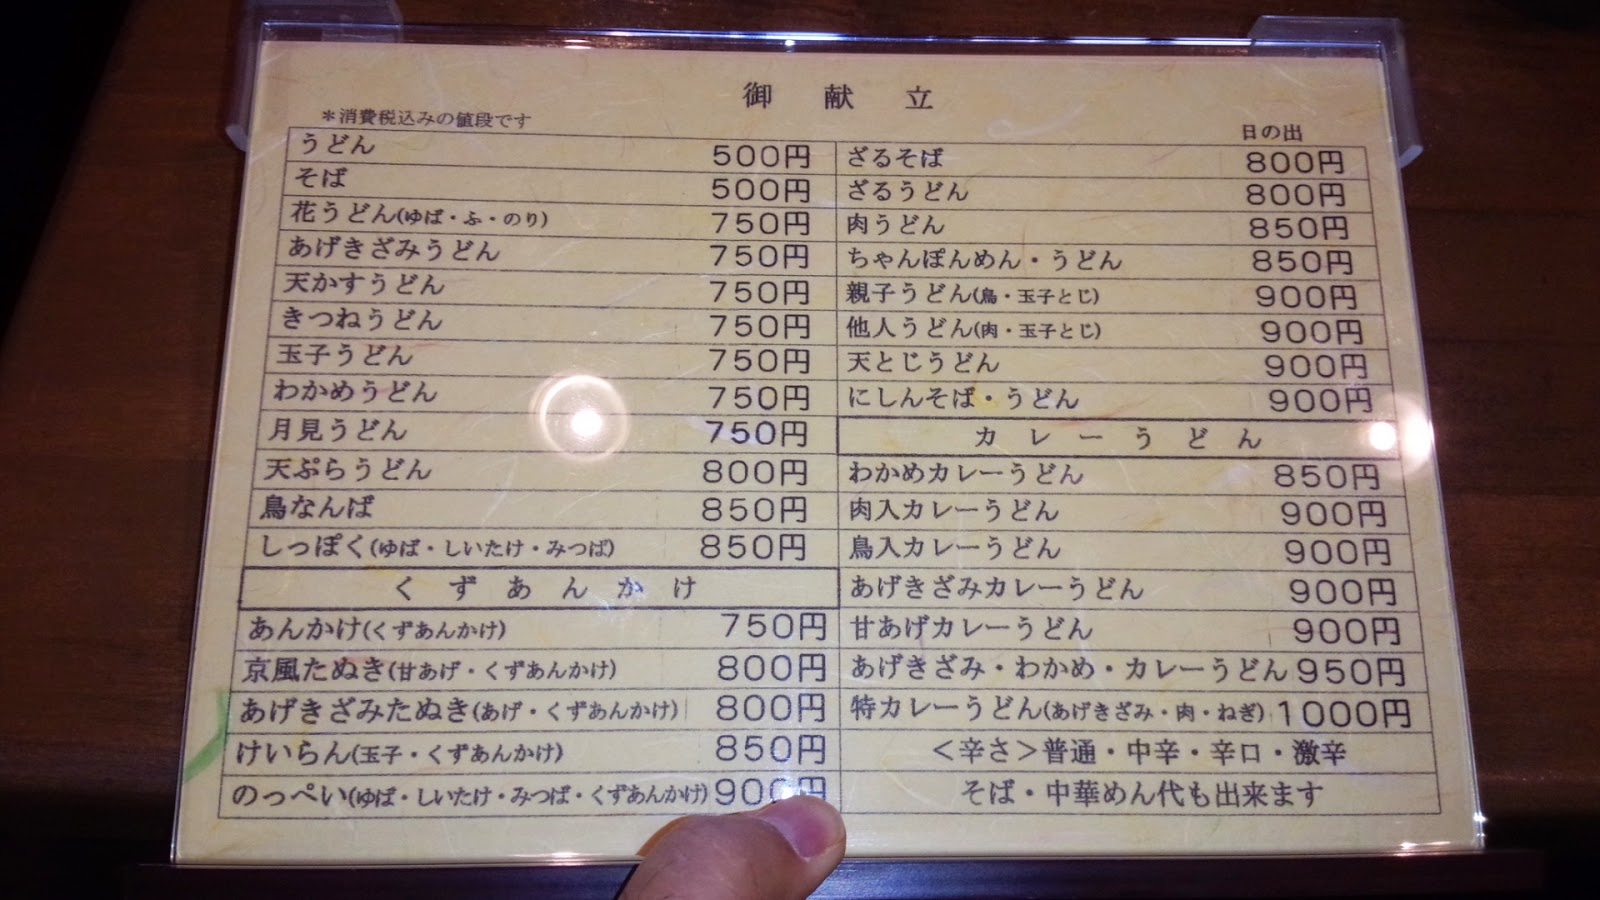 御献立
*消費税込みの値段です
日の出
うどん 500円
そば 500円
花うどん(ゆば・ふ・のり) 750円
あげきざみうどん 750円
天かすうどん 750円
きつねうどん 750円
玉子うどん 750円
わかめうどん 750円
月見うどん 750円
天ぷらうどん 800円
鳥なんば 850円
しっぽく(ゆば・しいたけ・みつば) 850円
くずあんかけ
あんかけ(くずあんかけ) 750円
京風たぬき(甘あげ・くずあんかけ) 800円
あげきざみたぬき(あげ・くずあんかけ) 800円
けいらん(玉子・くずあんかけ) 850円
のっぺい(ゆば・しいたけ・みつば・くずあんかけ) 900円
ざるそば 800円
ざるうどん 800円
肉うどん 850円
ちゃんぽんめん・うどん 850円
親子うどん(鳥・玉子とじ) 900円
他人うどん(肉・玉子とじ) 900円
天とじうどん 900円
にしんそば・うどん 900円
カレーうどん
わかめカレーうどん 850円
肉入カレーうどん 900円
鳥入カレーうどん 900円
あげきざみカレーうどん 900円
甘あげカレーうどん 900円
あげきざみ・わかめ・カレーうどん 950円
特カレーうどん(あげきざみ・肉・ねぎ) 1000円
<辛さ>普通・中辛・辛口・激辛
そば・中華めん代も出来ます